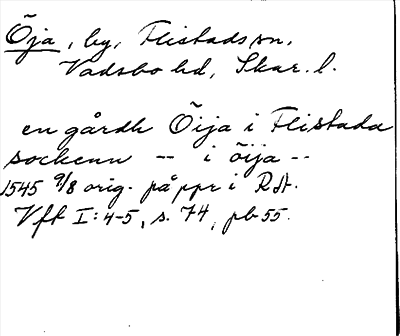 Öja, by, Flistads sn,
Vadsbo hd, Skar. l.
en gårdh Öija i Flistada
sockenn -- i öija --
1545 9/8 orig. på ppr i RA.
Vft I:4-5, s. 74, pb 55.